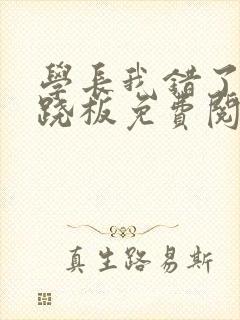 學長我錯了
跷板免費閱
真生路易斯